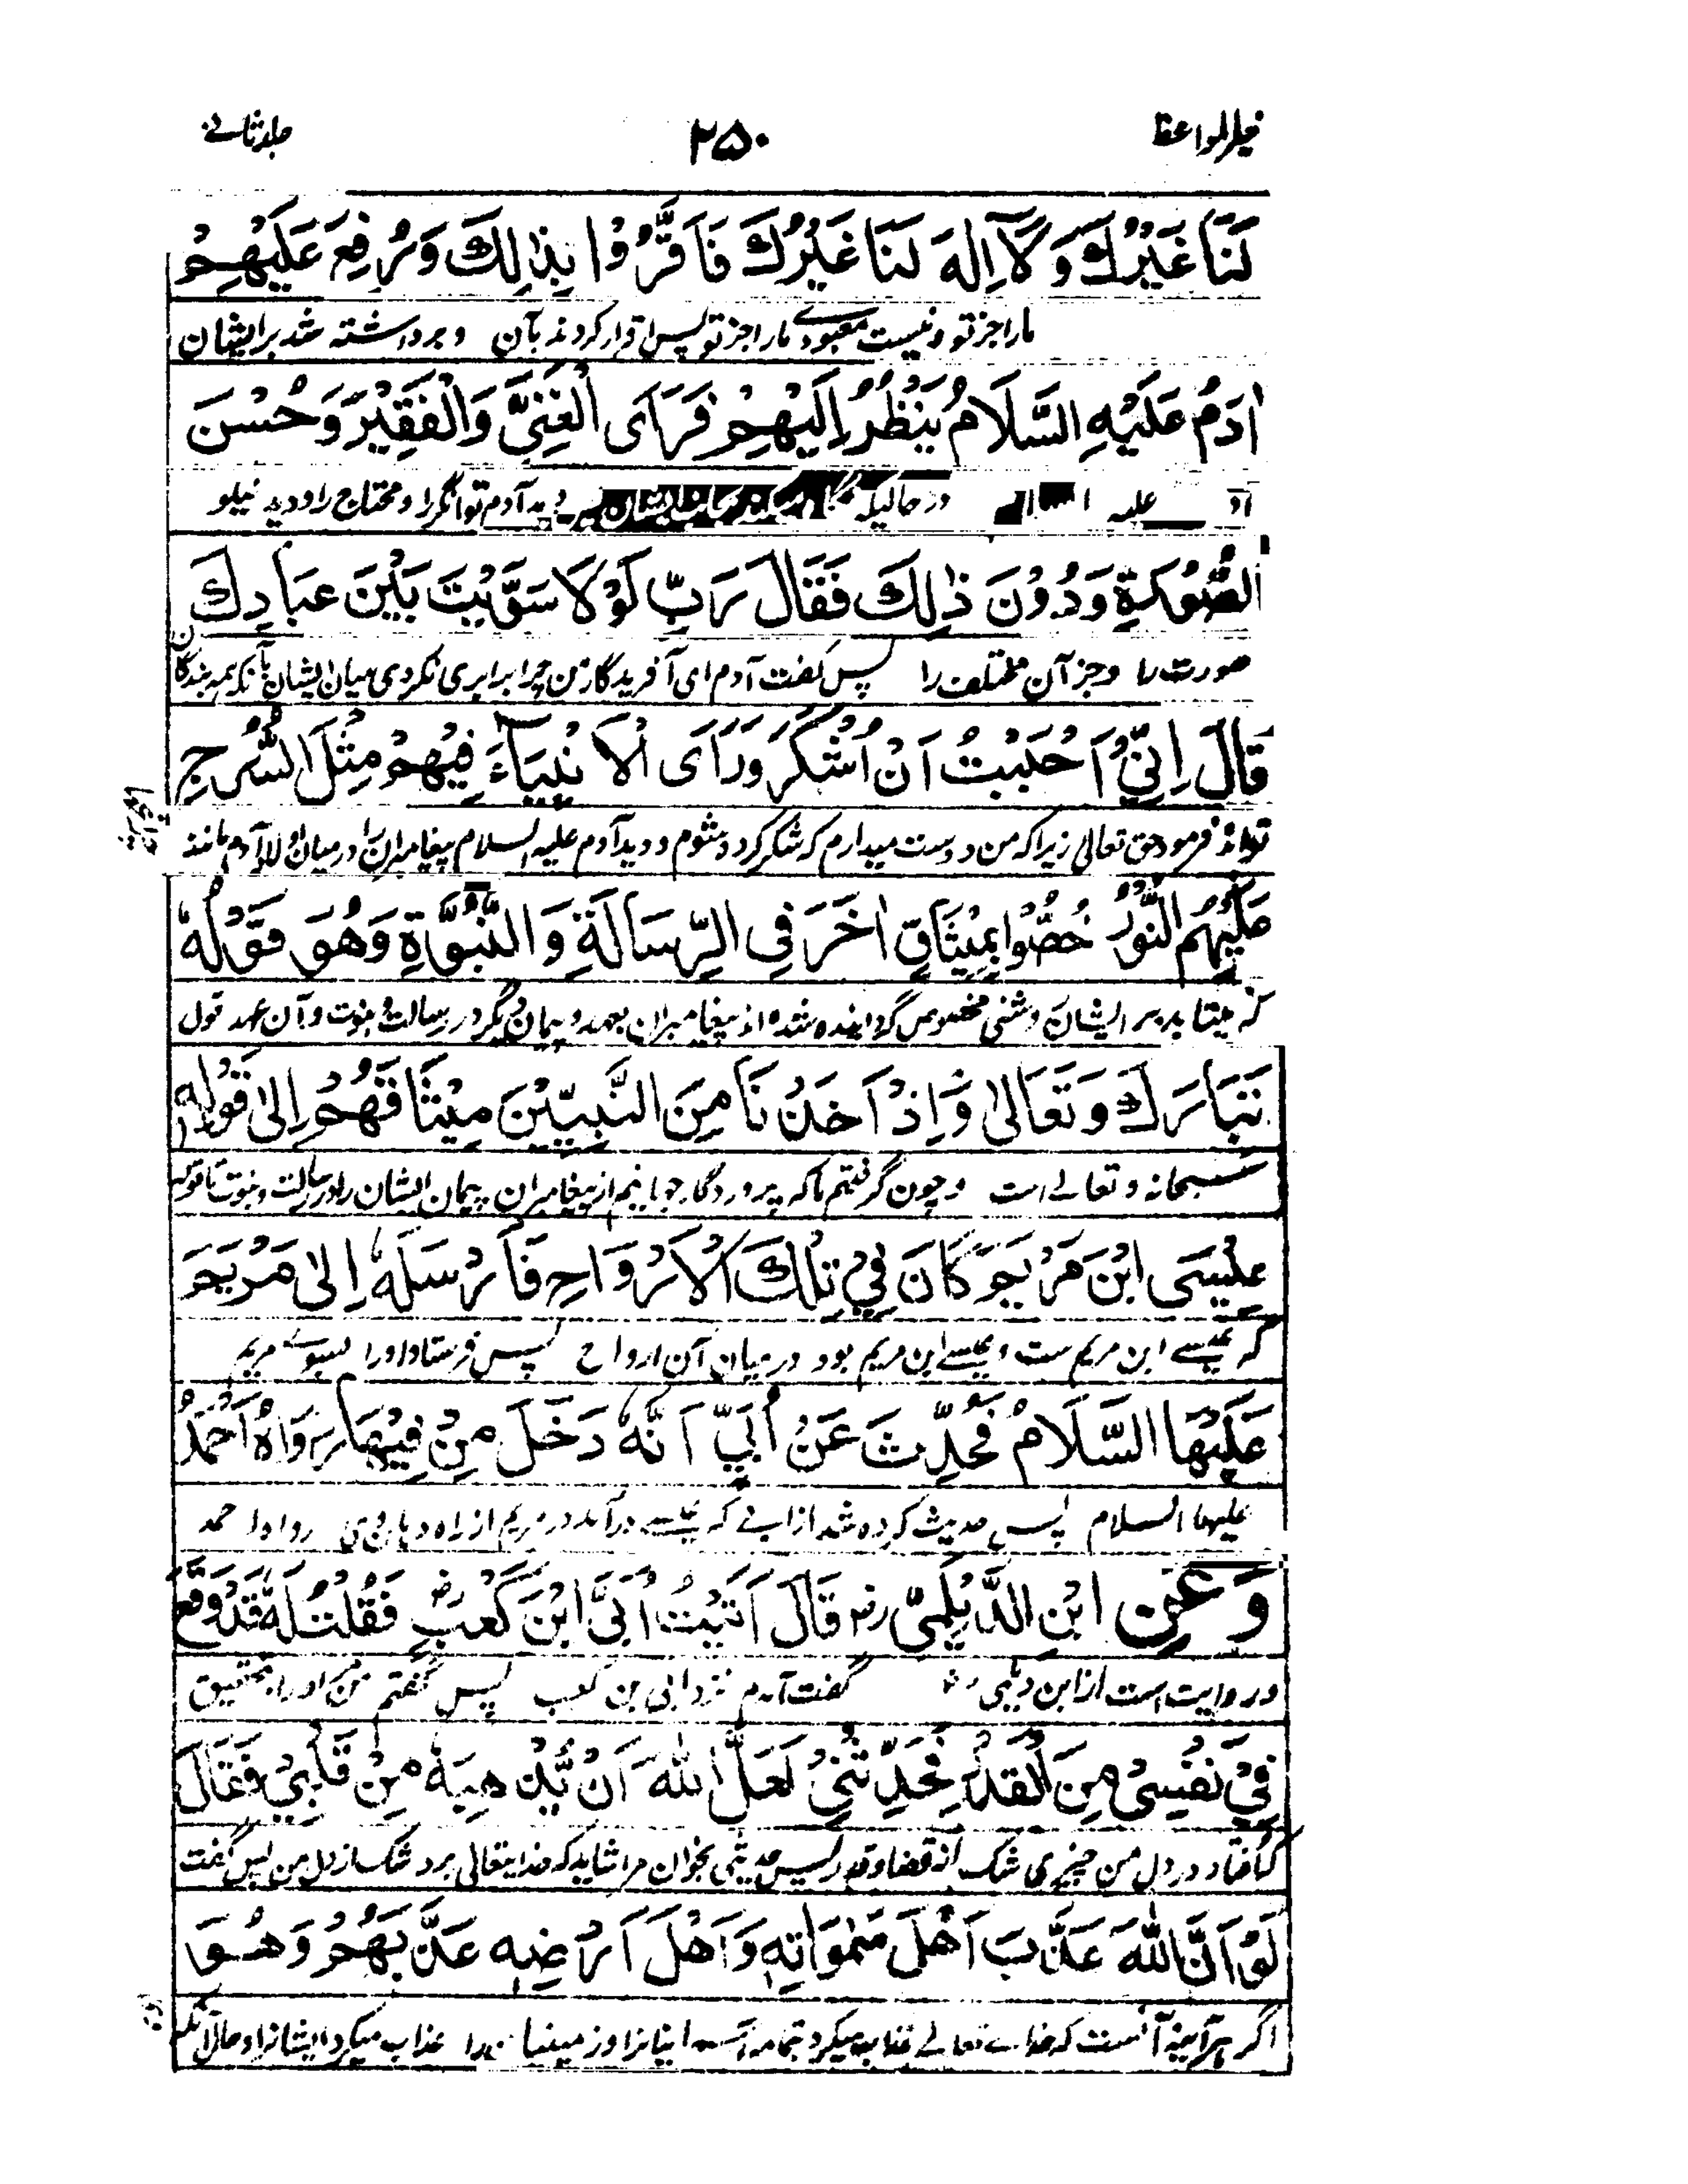 خیر المواعظ ۲۵۰ جلد ثانی
لَنَا غَيْرُكَ وَلَا اِلٰهَ لَنَا غَيْرُكَ فَاَقَرُّوْا بِذٰلِكَ وَرُفِعَ عَلَيْهِمْ
مارا جز تو و نیست معبودے مارا جز تو پس اقرار کردند بآن و برداشته شد بر ایشان
اٰدَمُ عَلَيْهِ السَّلَامُ يَنْظُرُ اِلَيْهِمْ فَرَاَى الْغَنِيَّ وَالْفَقِيْرَ وَحُسْنَ
علیه در حالیکه دید آدم توانگر را و محتاج را و دید نیکو
الصُّوْرَةِ وَدُوْنَ ذٰلِكَ فَقَالَ رَبِّ لَوْلَا سَوَّيْتَ بَيْنَ عِبَادِكَ
صورت را و جز آن مختلف را پس گفت آدم ای آفریدگار من چرا برابری نکردی میان ایشان بآنکه همه بندگان
قَالَ اِنِّيْ اَحْبَبْتُ اَنْ اُشْكَرَ وَرَاَى الْاَنْبِيَاءَ فِيْهِمْ مِثْلَ السُّرُجِ
تواند فرمود حق تعالی زیرا که من دوست میدارم که شکر کرده شوم و دید آدم علیه السلام پیغامبران را در میان اولاد آدم مانند
عَلَيْهِمُ النُّوْرُ خُصُّوْا بِمِيْثَاقٍ اٰخَرَ فِي الرِّسَالَةِ وَالنُّبُوَّةِ وَهُوَ قَوْلُهٗ
که میتابد بر ایشان روشنی مخصوص گردانیده شده اند پیغامبران بعهد و پیمان دیگر در رسالت و نبوت و آن عهد قول
تَبَارَكَ وَتَعَالٰى وَاِذْ اَخَذْنَا مِنَ النَّبِيِّيْنَ مِيْثَاقَهُمْ اِلٰى قَوْلِهٖ
سبحانه و تعالے است و چون گرفتیم ما که پروردگار جهانیم از پیغامبران پیمان ایشان را در رسالت و نبوت تا قوله
عِيْسَى ابْنِ مَرْيَمَ كَانَ فِيْ تِلْكَ الْاَرْوَاحِ فَاَرْسَلَهٗ اِلٰى مَرْيَمَ
که عیسے ابن مریم ست و عیسے ابن مریم بود در میان آن ارواح پس فرستاد او را بسوے مریم
عَلَيْهَا السَّلَامُ فَحُدِّثَ عَنْ اُبَيٍّ اَنَّهٗ دَخَلَ مِنْ فِيْهَا رَوَاهُ اَحْمَدُ
علیها السلام پس حدیث کرده شد از ابی که عیسے درآمد در مریم از راه دهان وی رواه احمد
وَعَنِ ابْنِ الدَّيْلَمِيِّ رض قَالَ اَتَيْتُ اُبَيَّ ابْنَ كَعْبٍ رض فَقُلْتُ لَهٗ قَدْ وَقَعَ
و روایت است از ابن دیلمی رض گفت آمدم نزد ابی بن کعب پس گفتم من او را بتحقیق
فِيْ نَفْسِيْ مِنَ الْقَدْرِ فَحَدِّثْنِيْ لَعَلَّ اللّٰهَ اَنْ يُّذْهِبَهٗ مِنْ قَلْبِيْ فَقَالَ
که افتاد در دل من چیزی شک از قضا و قدر پس حدیثی بخوان مرا شاید که خدایتعالی برد شک از دل من پس گفت
لَوْ اَنَّ اللّٰهَ عَذَّبَ اَهْلَ سَمٰوَاتِهٖ وَاَهْلَ اَرْضِهٖ عَذَّبَهُمْ وَهُوَ
اگر هر آئینه آنست که خداے تعالے عذاب میکرد عذاب میکرد ایشانرا و حالانکه